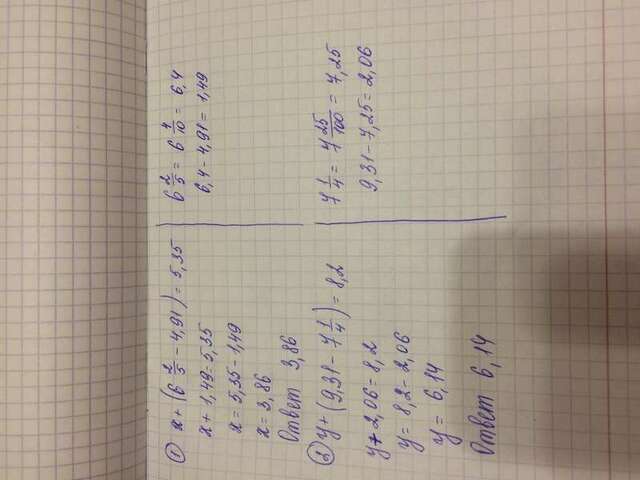 ① x + (6 2/5 - 4,91) = 5,35
x + 1,49 = 5,35
x = 5,35 - 1,49
x = 3,86
Ответ 3,86
6 2/5 = 6 4/10 = 6,4
6,4 - 4,91 = 1,49
② y + (9,31 - 7 1/4) = 8,2
y + 2,06 = 8,2
y = 8,2 - 2,06
y = 6,14
Ответ 6,14
7 1/4 = 7 25/100 = 7,25
9,31 - 7,25 = 2,06